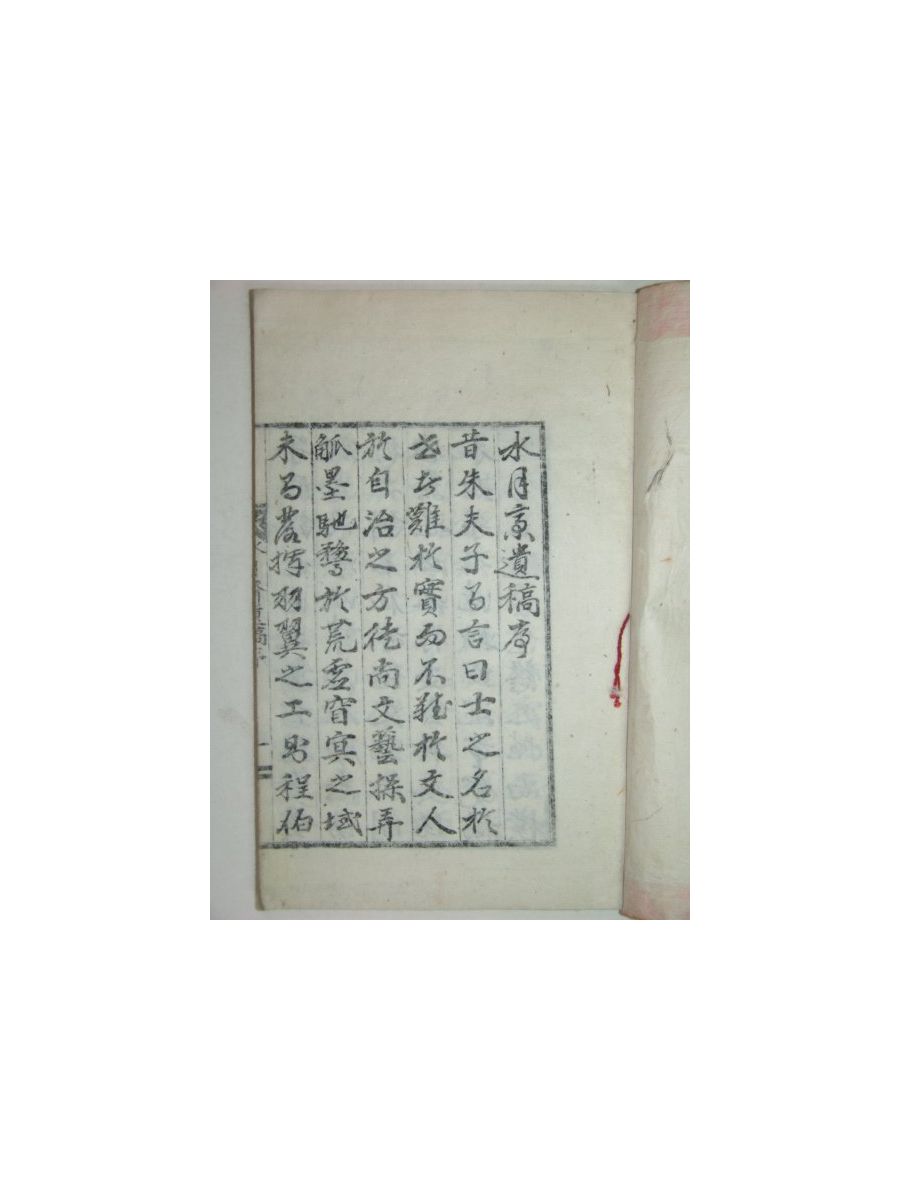 水月齋遺稿序
昔朱夫子有言曰士之名於
世者難於實而不難於文人
於自治之方徒尚文藝操弄
觚墨馳騖於荒虛窅冥之域
未有發揮羽翼之工則程伯